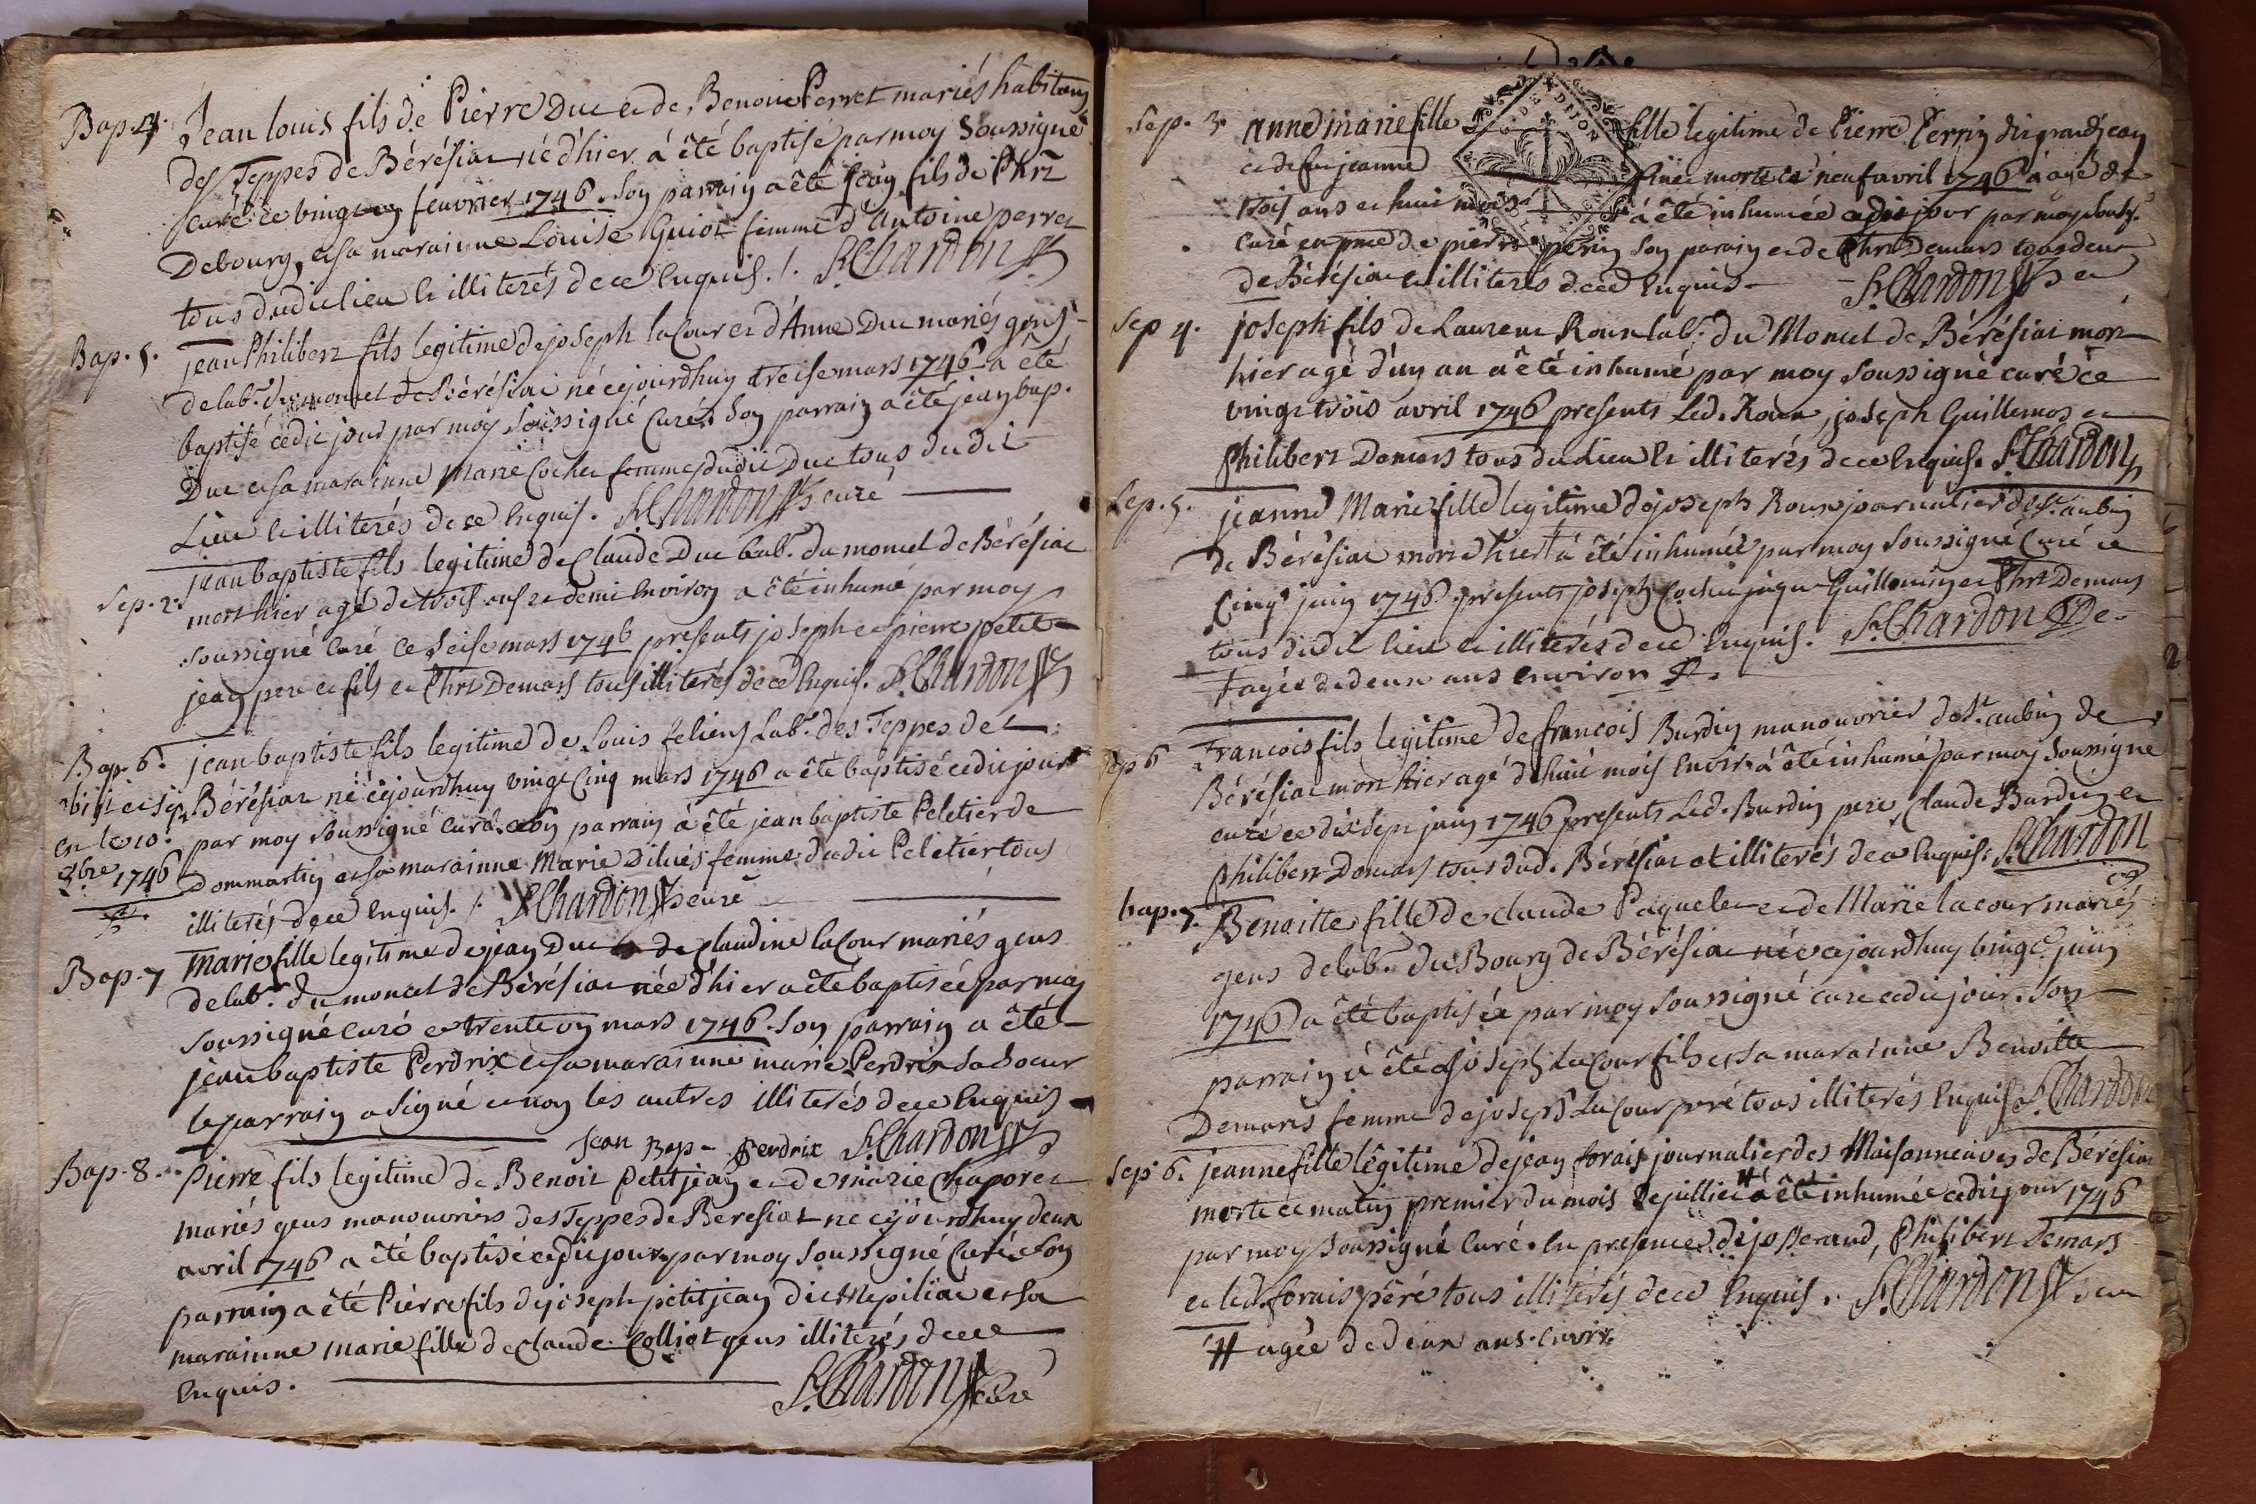 Bap. 4. Jean louis fils de Pierre Duc et de Benoite Perret mariés habitans
des Teppes de Bérésiat né d'hier a été baptisé par moy soussigné
curé ce vingt un feuvrier 1746. Son parrain a été jean fils de Phrt
Debourg, et sa marainne Louise Guiot femme d'Antoine perret
tous dudit lieu et illiterés de ce Enquis. /. S. Chardon
Bap. 5. jean Philibert fils legitime de joseph lacour et d'Anne Duc mariés gens
de labr. du moncel de Bérésiat né cejourdhuy treise mars 1746 a été
baptisé cedit jour par moy soussigné Curé. Son parrain a été jean bap.
Duc et sa marainne Marie Cochet femme dudit Duc tous dudit
Lieu et illiterés de ce Enquis. S. Chardon curé
Sep. 2. jean baptiste fils legitime de Claude Duc lab. du moncel de Bérésiat
mort hier agé de trois ans et demi Environ a été inhumé par moy
soussigné curé ce seise mars 1746 presents joseph et pierre petit
jean pere et fils et Phrt Demars tous illiterés de ce Enquis. S. Chardon
Bap. 6. jean baptiste fils legitime de Louis feliens Lab. des Teppes de
Bérésiat né cejourdhuy vingt Cinq mars 1746 a été baptisé cedit jour
en le 10. par moy soussigné curé. son parrain a été jean baptiste Peletier de
9bre 1746 Dommartin et sa marainne Marie Dilués femme dudit Peletier tous
illiterés de ce Enquis. /. S. Chardon curé
Bap. 7 Marie fille legitime de jean Duc et de Claudine lacour mariés gens
de labr. du moncel de Bérésiat née d'hier a été baptisée par moy
soussigné curé ce trente un mars 1746. Son parrain a été
jean baptiste Perdrix et sa marainne marie Perdrix sa soeur
le parrain a signé et non les autres illiterés de ce Enquis
Jean Bap- Perdrix S. Chardon
Bap. 8. Pierre fils legitime de Benoit Petitjean et de marie Chaporet
mariés gens manouvriers des Teppes de Beresiat né cejourdhuy deux
avril 1746 a été baptisé cedit jour par moy soussigné Curé. Son
parrain a été Pierre fils de joseph petitjean dit et sa
marainne marie fille de Claude Colliot gens illiterés de ce
Enquis. S. Chardon curé
Sep. 3. anne marie fille fille legitime de Pierre Perrin dit grandjean
et de fue jeanne morte ce neuf avril 1746 agé de
trois ans et huit mois a été inhumée cedit jour par moy souss.
Curé en pnce de pierre perrin son parain et de Phrt Demars tous deux
de Bérésiat et illiterés de ce Enquis S. Chardon
Sep 4. joseph fils de Laurent Roux lab. du Moncel de Bérésiat mort
hier agé d'un an a été inhumé par moy soussigné curé ce
vingt trois avril 1746 presents Led. Roux, joseph Guillemoz et
Philibert Demars tous du Lieu et illiterés de ce Enquis. S. Chardon
Sep. 5. jeanne Marie fille legitime de joseph Roux journalier de St. aubin
de Bérésiat morte hier † a été inhumée par moy soussigné Curé ce
Cinq juin 1746. presents joseph Cochet Guillemin et Phrt Demars
tous dudit lieu et illiterés de ce Enquis. S. Chardon
† agée de deux ans environ
Sep 6 Francois fils legitime de francois Burdin manouvrier de St. aubin de
Bérésiat mort hier agé de huit mois Envir. a été inhumé par moy soussigné
curé ce dix sept juin 1746 presents Led. Burdin pere, Claude Burdin et
Philibert Demars tous dud. Bérésiat et illiterés de ce Enquis. S. Chardon
bap. 7. Benoitte fille de claude Paquelet et de Marie lacour mariés
gens de labr. du Bourg de Bérésiat née cejourdhuy vingt juin
1746 a été baptisée par moy soussigné curé cedit jour. Son
parrain a été joseph LaCour fils et sa marainne Benoitte
Demaris femme de joseph LaCour peré tous illiterés Enquis. S. Chardon
Sep 6. jeanne fille legitime de jean forais journalier des Maisonneuves de Bérésiat
morte ce matin premier du mois de juillet # a été inhumée cedit jour 1746
par moy soussigné Curé. En presence de jo Beraud, Philibert Demars
et led. forais péré tous illiterés de ce Enquis. S. Chardon
# agée de deux ans. Envir.